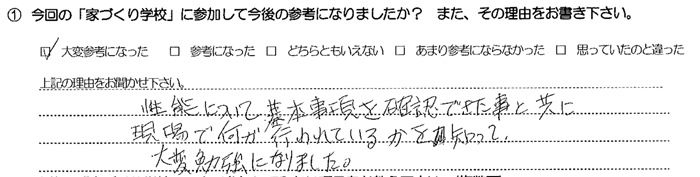 ① 今回の「家づくり学校」に参加して今後の参考になりましたか？ また、その理由をお書き下さい。
☑ 大変参考になった □ 参考になった □ どちらともいえない □ あまり参考にならなかった □ 思っていたのと違った
上記の理由をお聞かせ下さい。
性能について基本事項を確認できた事と共に
現場で何が行われているかを知って、
大変勉強になりました。